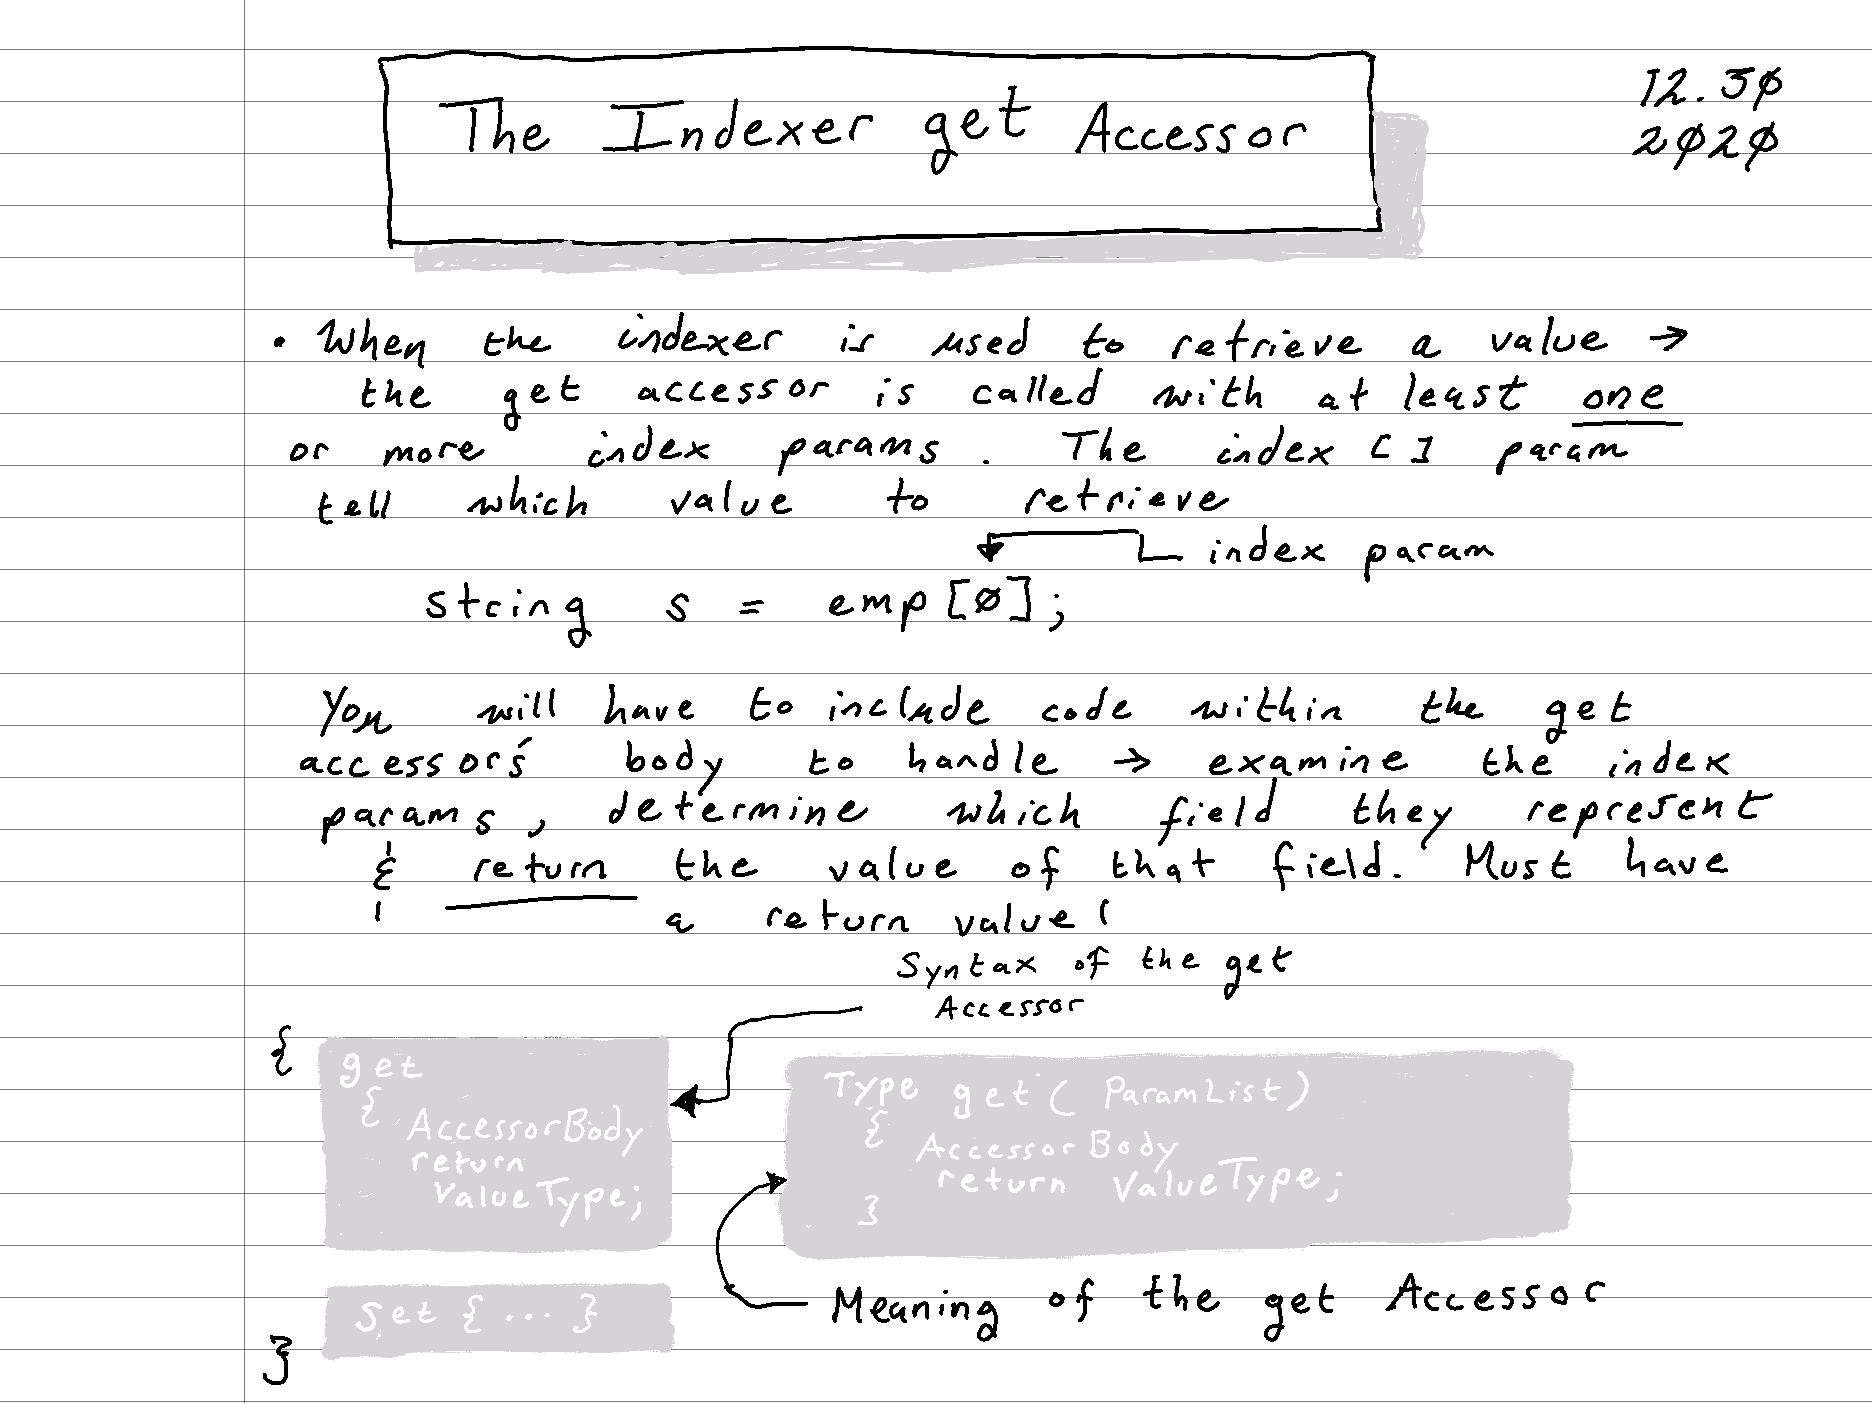 The Indexer get Accessor
12.30
2020
• When the indexer is used to retrieve a value →
the get accessor is called with at least one
or more index params. The index [] param
tell which value to retrieve
index param
string s = emp[0];
You will have to include code within the get
accessor's body to handle → examine the index
params, determine which field they represent
& return the value of that field. Must have
a return value!
Syntax of the get
Accessor
{
get
{
AccessorBody
return
ValueType;
set { ... }
}
Type get( ParamList)
{
AccessorBody
return ValueType;
}
Meaning of the get Accessor